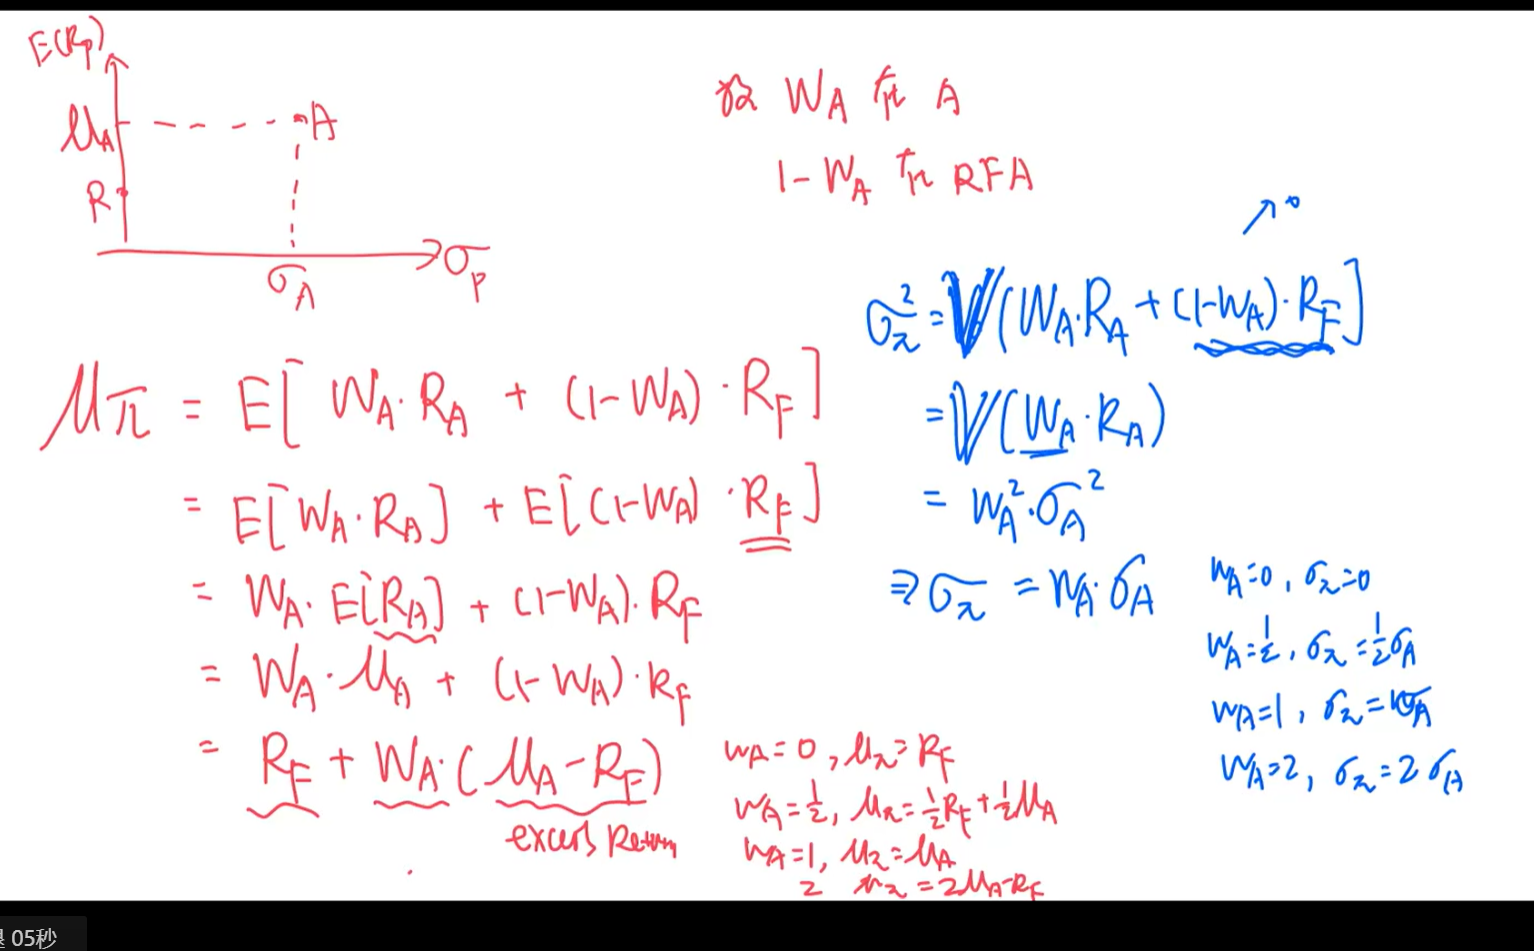 E(Rp)
μA
A
R
σA
σp
投 WA 於 A
1-WA 於 RFA
μπ = E[ WA·RA + (1-WA)·RF ]
= E[WA·RA] + E[(1-WA)·RF]
= WA·E[RA] + (1-WA)·RF
= WA·μA + (1-WA)·RF
= RF + WA·(μA-RF)
excess Return
WA=0, μπ=RF
WA=½, μπ=½RF+½μA
WA=1, μπ=μA
2 μπ=2μA-RF
↗0
σπ²=V(WA·RA+(1-WA)·RF]
=V(WA·RA)
= WA²·σA²
⇒ σπ = WA·σA
WA=0, σπ=0
WA=½, σπ=½σA
WA=1, σπ=σA
WA=2, σπ=2σA
05秒